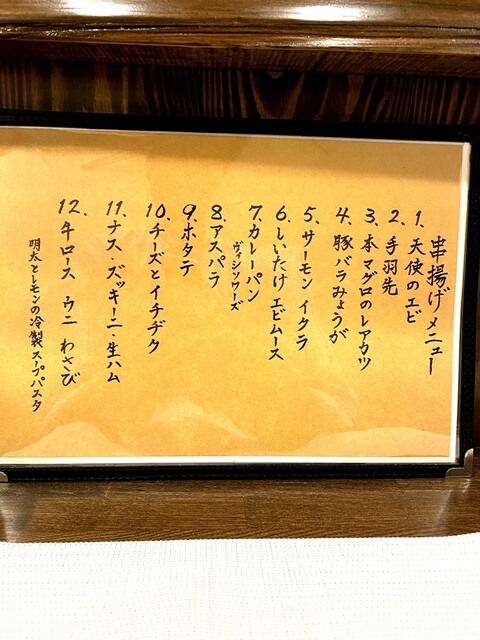 串揚げメニュー
1、天使のエビ
2、手羽先
3、本マグロのレアカツ
4、豚バラみょうが
5、サーモン イクラ
6、しいたけ エビムース
7、カレーパン
ヴィシソワーズ
8、アスパラ
9、ホタテ
10、チーズとイチヂク
11、ナス・ズッキーニ・生ハム
12、牛ロース ウニ わさび
明太とレモンの冷製スープパスタ